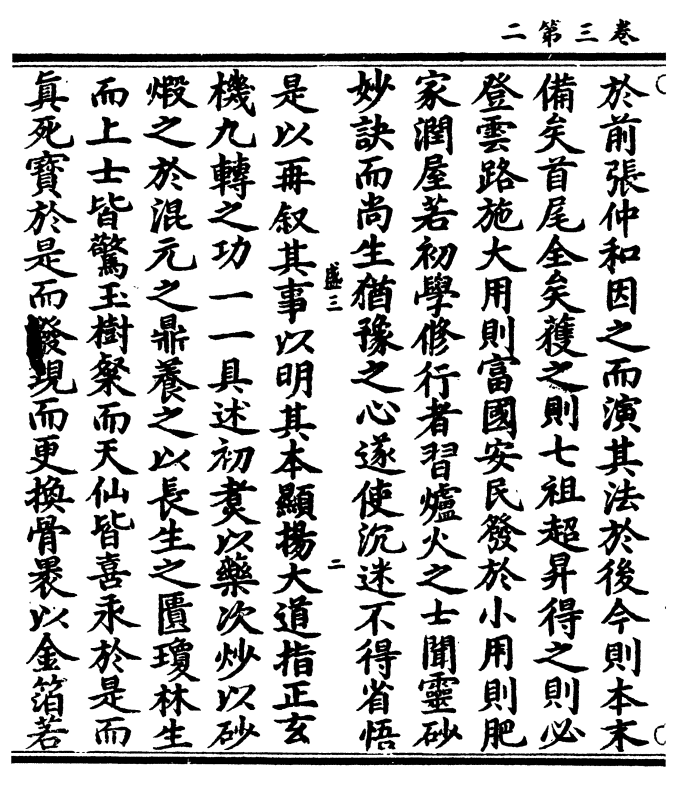 卷三第二
於前張仲和因之而演其法於後今則本末
備矣首尾全矣䕶之則七祖超昇得之則必
登雲路施大用則富國安民發於小用則肥
家潤屋若初學修行者習爐火之士聞靈砂
妙訣而尚生猶豫之心遂使沉迷不得省悟
虛三
二
是以再叙其事以明其本顯揚大道指正玄
機九轉之功一一具述初煑以藥次炒以砂
煆之於混元之鼎養之以長生之匱瓊林生
而上士皆驚玉樹粲而天仙皆喜汞於是而
真死寶於是而發現而更換骨褁以金箔若